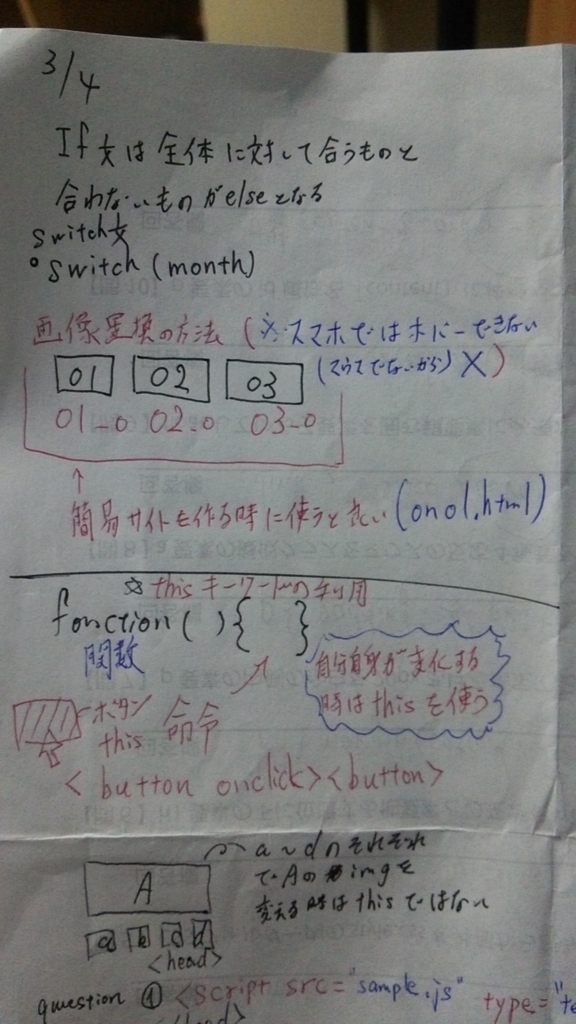 3/4
If文は全体に対して合うものと
合わないものがelseとなる
switch文
○switch (month)
画像置換の方法 (※スマホではホバーできない
(マウスでないから) X)
01 02 03
01_o 02_o 03_o
↑
簡易サイトを作る時に使うと良い (on01.html)
☆thisキーワードの利用
fonction( ){ }
関数
自分自身が変化する
時はthisを使う
ボタン
this 命令
< button onclick><button>
a~dのそれぞれ
でAのimgを
変える時はthisではない
A
a b c d
<head>
question ① <script src="sample.js" type="te
</head>